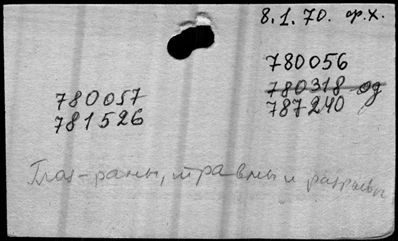 8.1.70. ор.х.
780056
780318 од
787240
780057
781526
Глаз-раны, травмы и разрывы